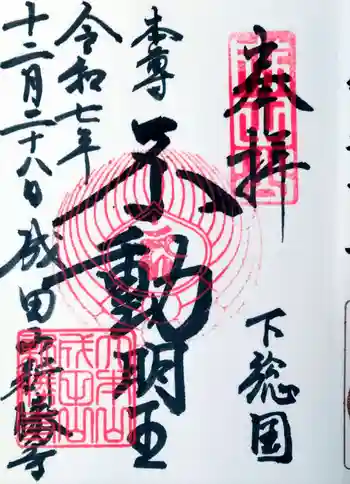 奉拝
下総国
本尊
不動明王
令和七年
十二月二十八日
成田山新勝寺